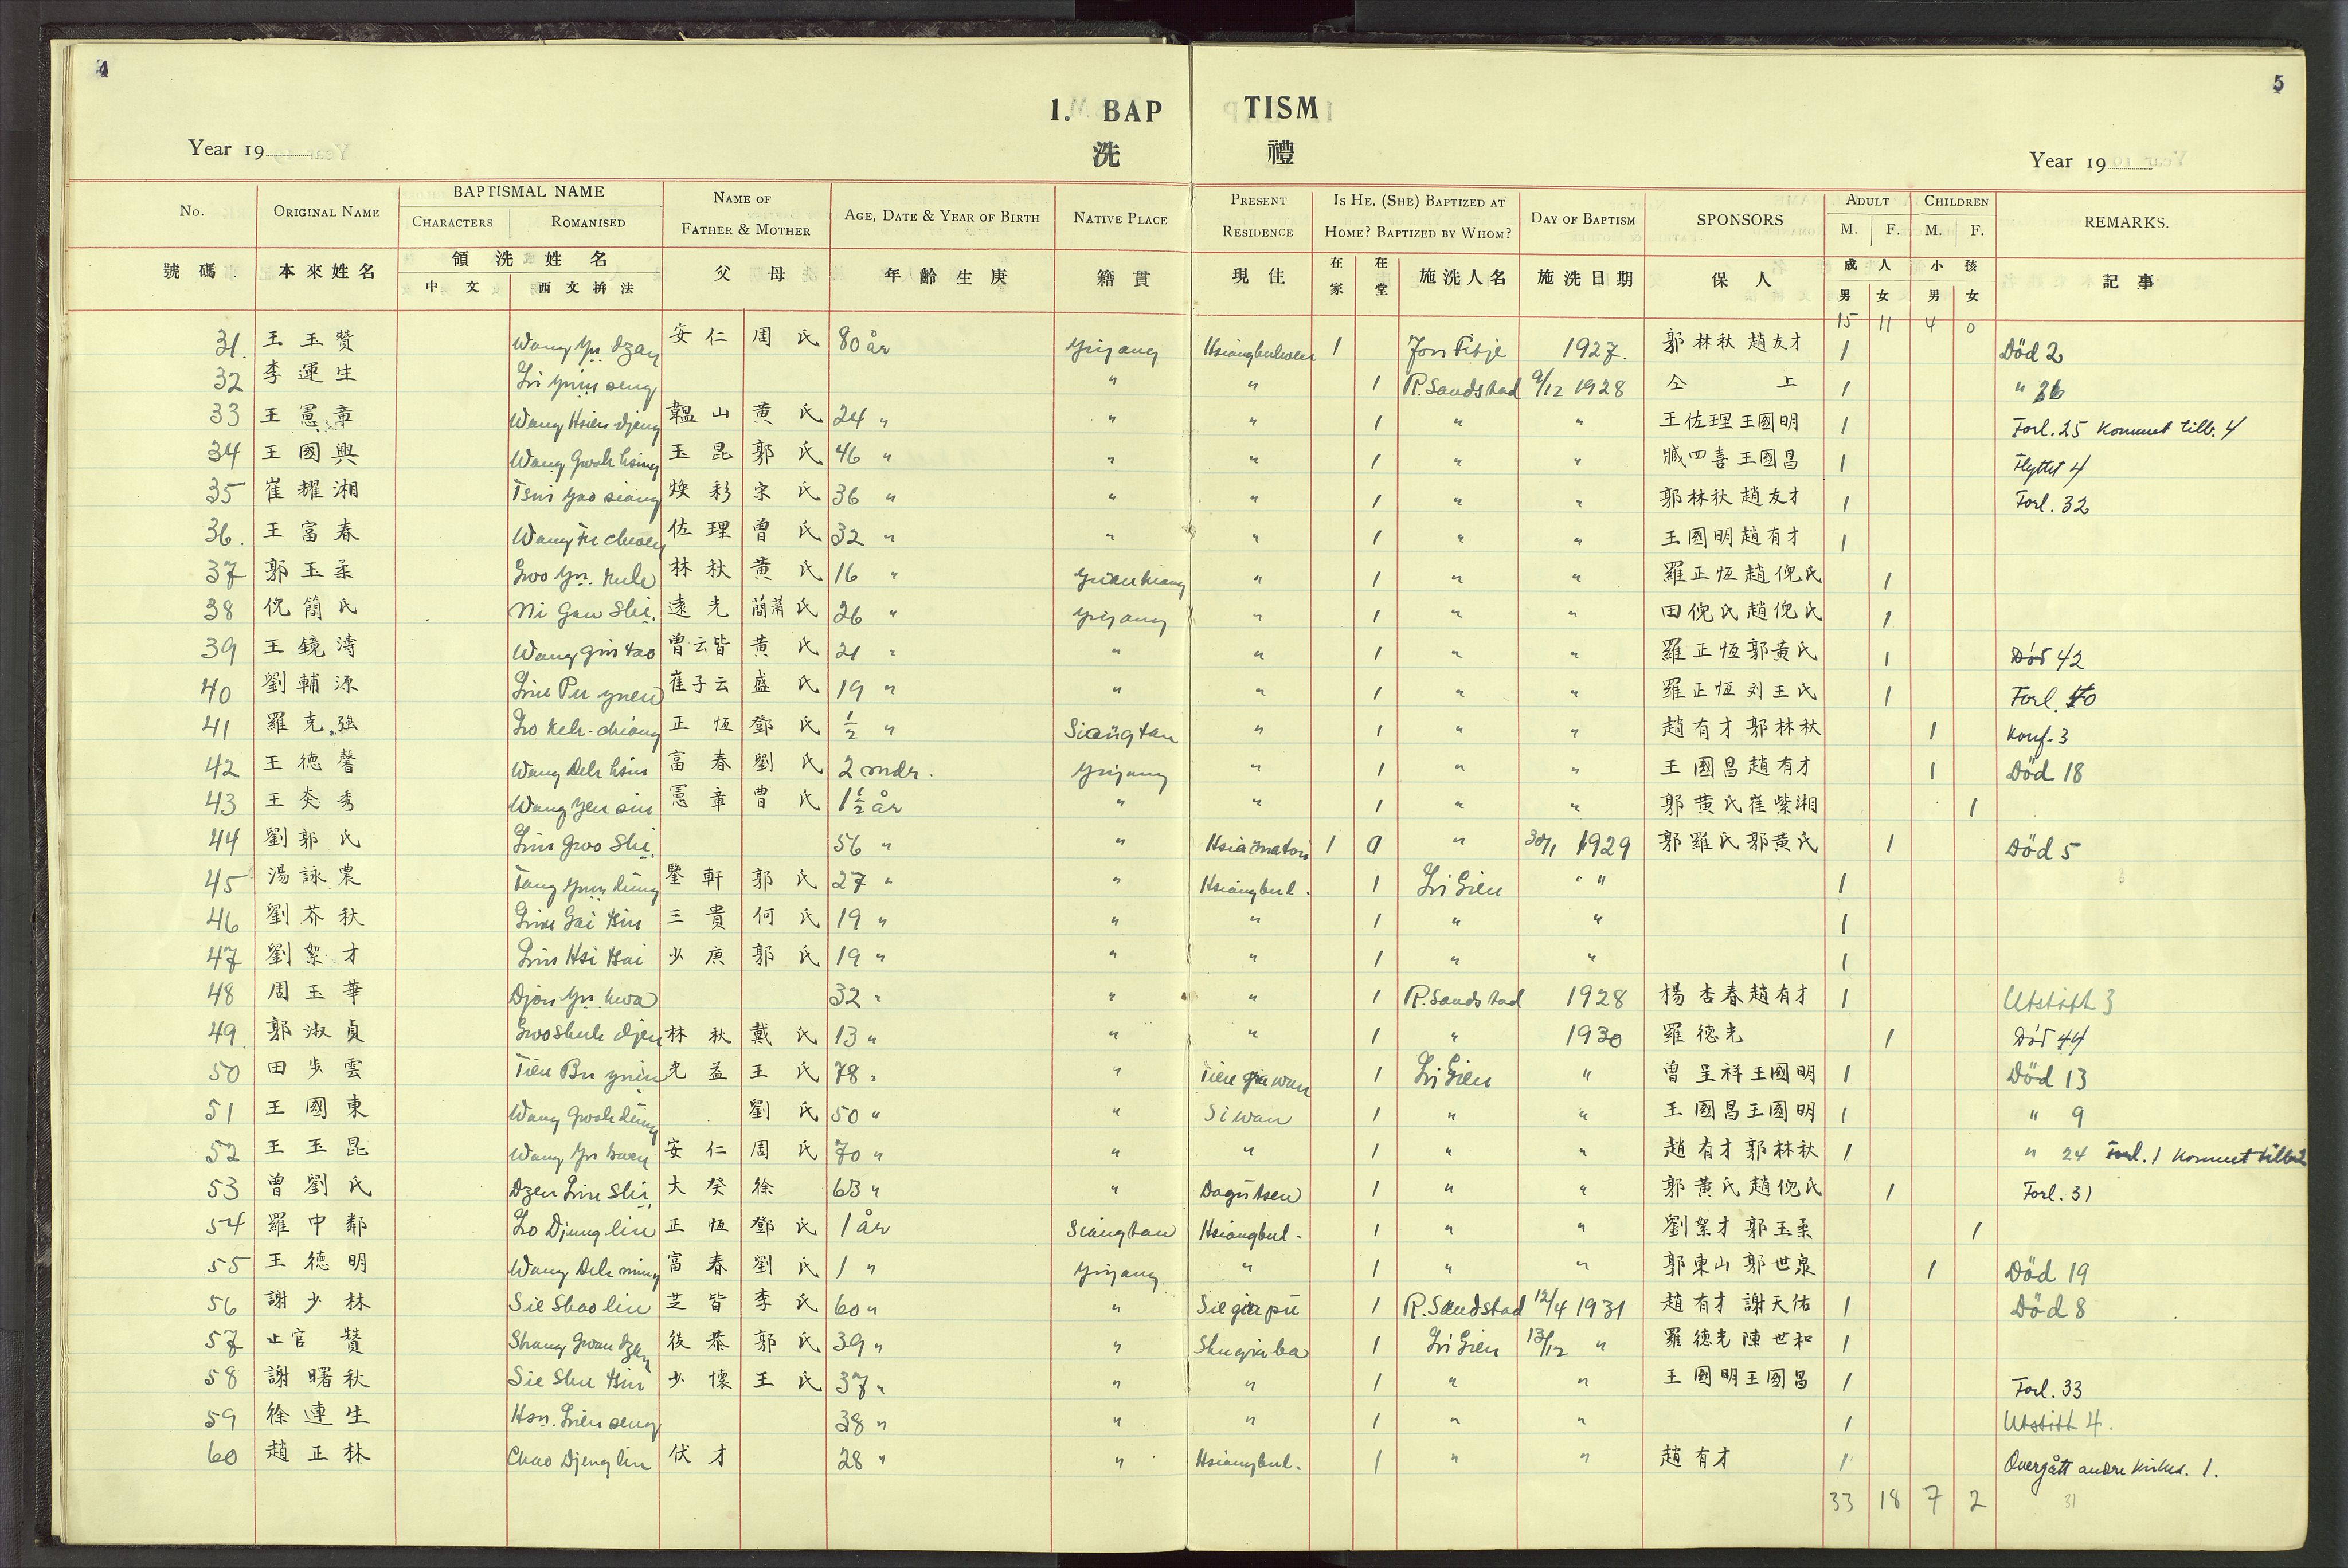 4
5
1. BAP TISM
洗 禮
Year 19
Year 19
No. ORIGINAL NAME BAPTISMAL NAME CHARACTERS ROMANISED NAME OF FATHER & MOTHER AGE, DATE & YEAR OF BIRTH NATIVE PLACE PRESENT RESIDENCE IS HE, (SHE) BAPTIZED AT HOME? BAPTIZED BY WHOM? DAY OF BAPTISM SPONSORS ADULT M. F. CHILDREN M. F. REMARKS.
號碼 本來姓名 領洗姓名 中文 西文拚法 父母 年齡生庚 籍貫 現住 在家 在堂 施洗人名 施洗日期 保人 成人 男 女 小孩 男 女 記事
15 11 4 0
31. 王玉贊 Wang Yü. dzan 安仁 周氏 80 år Yiyang 1 1927. 郭林秋 趙友才 1 Död 2
32 李運生 Li Yuin seng " " 1 R. Sandstad 9/12 1928 仝上 1 "
33 王憲章 Wang Hsien djang 韞山 黄氏 24 " " " 1 " " 王佐理 王國明 1 Forl. 25 Kommet tilb. 4
34 王國興 Wang Gwoh hsing 玉昆 郭氏 46 " " " 1 " " 臧四喜 王國昌 1 Flyttet 4
35 崔耀湘 Tsui Yao siang 煥彩 宋氏 36 " " " 1 " " 郭林秋 趙友才 1 Forl. 32
36. 王富春 Wang Fu chuen 佐理 曾氏 32 " " " 1 " " 王國明 趙有才 1
37 郭玉柔 Gwo Yü. 林秋 黄氏 16 " Yüankiang " 1 " " 羅正恆 趙倪氏 1
38 倪簡氏 Ni Gan Shi. 遠光 簡蕭氏 26 " Yiyang " 1 " " 田倪氏 趙倪氏 1
39 王鏡濤 Wang Gin tao 曾云皆 黄氏 21 " " " 1 " " 羅正恆 郭黄氏 1 Död 42
40 劉輔源 Liu Pu yuen 崔子云 盛氏 19 " " " 1 " " 羅正恆 刘王氏 1 Forl.
41 羅克强 Lo Keh-chiang 正恆 鄧氏 ½ " Siangtan " 1 " " 趙有才 郭林秋 1 Konf. 3
42 王德馨 Wang Deh hsin 富春 劉氏 2 mdr. Yiyang " 1 " " 王國昌 趙有才 1 Död 18
43 王炎秀 Wang Yen siu 憲章 曹氏 1½ år " " 1 " " 郭黄氏 崔紫湘 1
44 劉郭氏 Liu Gwo Shi. 56 " " 1 " 30/1 1929 郭羅氏 郭黄氏 1 Död 5
45 湯詠農 鑒軒 郭氏 27 " " Hsiangbul. 1 Li Gien " 1
46 劉芥秋 Liu Gai tsiu 三貴 何氏 19 " " " 1 " " 1
47 劉絮才 Liu Hsi tsai 少庚 郭氏 19 " " " 1 " " 1
48 周玉華 Djou Yü. hwa 32 " " " 1 R. Sandstad 1928 楊杏春 趙有才 1 Utstött 3
49. 郭淑貞 Gwo Shuh djen 林秋 戴氏 13 " " " 1 " 1930 羅德光 1 Död 44
50 田步雲 Tien Bu yuin 光益 王氏 78 " " Tien gia wan 1 Li Gien " 曾呈祥 王國明 1 Död 13
51 王國東 Wang Gwoh dung 劉氏 50 " " Siwan 1 " " 王國昌 王國明 1 " 9
52 王玉昆 Wang Yü kuen 安仁 周氏 70 " " " 1 " " 趙有才 郭林秋 1 " 24 Forl. 1 Kommet tilb. 2
53 曾劉氏 Dzen Liu Shi. 大癸 徐 63 " " 1 " " 郭黄氏 趙倪氏 1 Forl. 31
54 羅中鄰 Lo Djung lin 正恆 鄧氏 1 år Siangtan Hsiangbul. 1 " " 劉絮才 郭玉柔 1
55 王德明 Wang Deh ming 富春 劉氏 1 " Yiyang " 1 " " 郭東山 郭世泉 1 Död 19
56 謝少林 Sie Shao lin 芝皆 李氏 60 " " Sie gia pü 1 R. Sandstad 12/4 1931 趙有才 謝天佑 1 Död 8
57 上官贊 Shang Gwan dzan 後恭 郭氏 39 " " Shu gia ba 1 Li Gien 13/12 " 羅德光 陳世和 1
58 謝曙秋 Sie Shu tsiu 少懷 王氏 37 " " " 1 " " 王國明 王國昌 1 Forl. 33
59 徐連生 Hsü. Lien seng 38 " " " 1 " " 1 Utstött 4.
60 趙正林 Chao Djeng lin 伏才 28 " " Hsiangbul. 1 " " 趙有才 1 Overgått andre kirkes. 1.
33 18 7 2 31